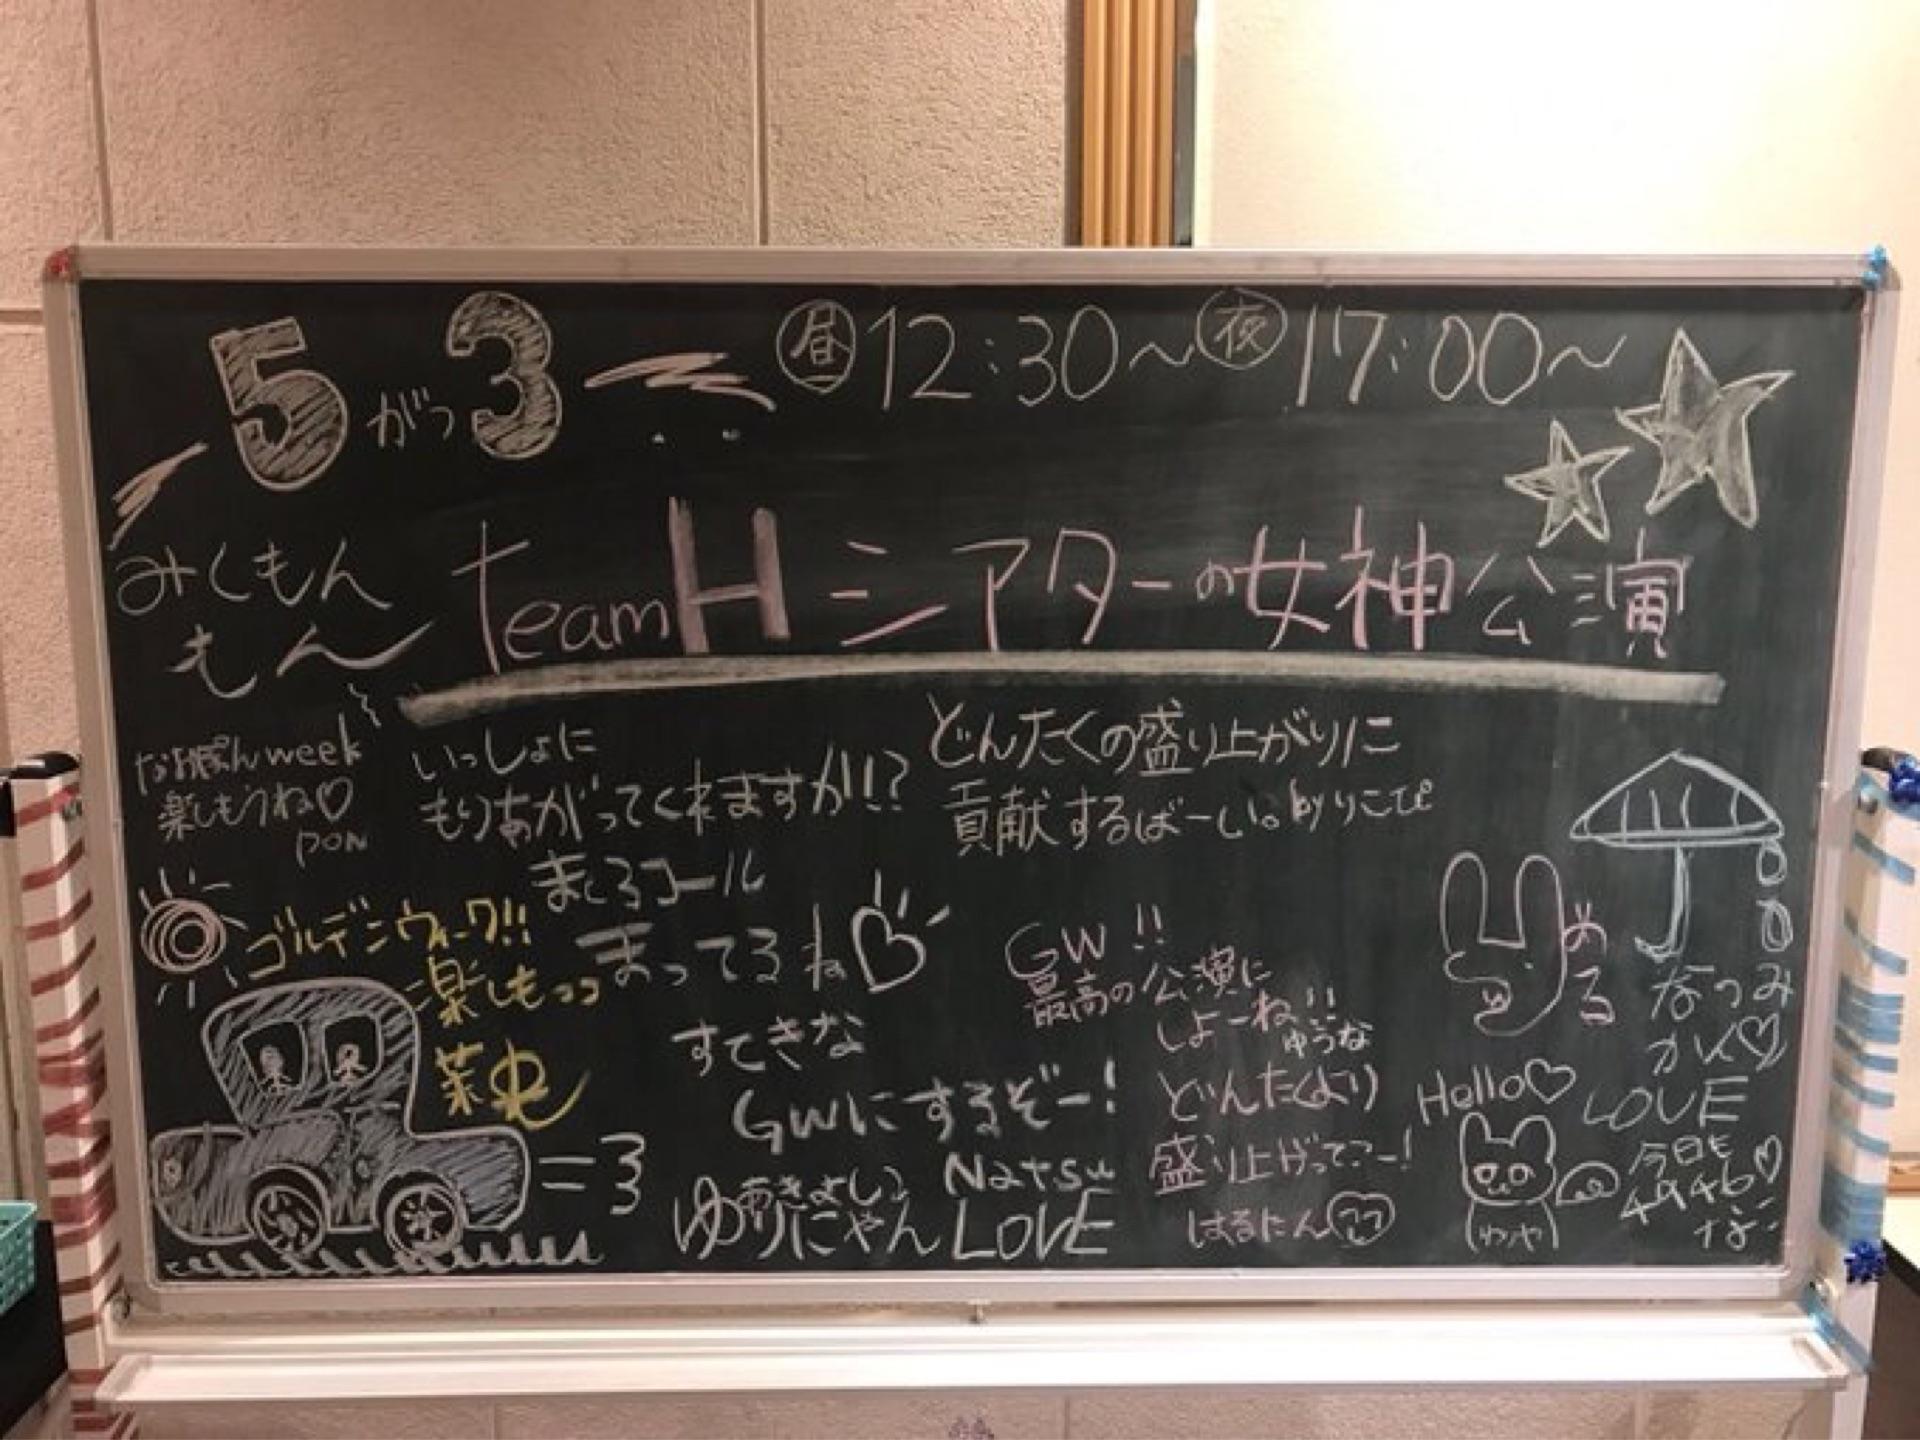 5がつ3 昼12:30〜夜17:00〜
みくもん
もん
teamHシアターの女神公演
なおぽんweek
楽しもうね♡
pon
いっしょに
もりあがってくれますか!!?
ましろコール
まってるね♡
どんたくの盛り上がりに
貢献するばーい。byりこぴ
ゴールデンウィーク!!
楽しもっっ
=3
すてきな
GWにするぞー!
あきよしっ
ゆりにゃん
Natsu
LOVE
GW!!
最高の公演に
しよーね!!
ゆうな
どんたくより
盛り上がってこー!
はるたん
める
なつみ
かん♡
LOVE
Hello♡
今日も♡